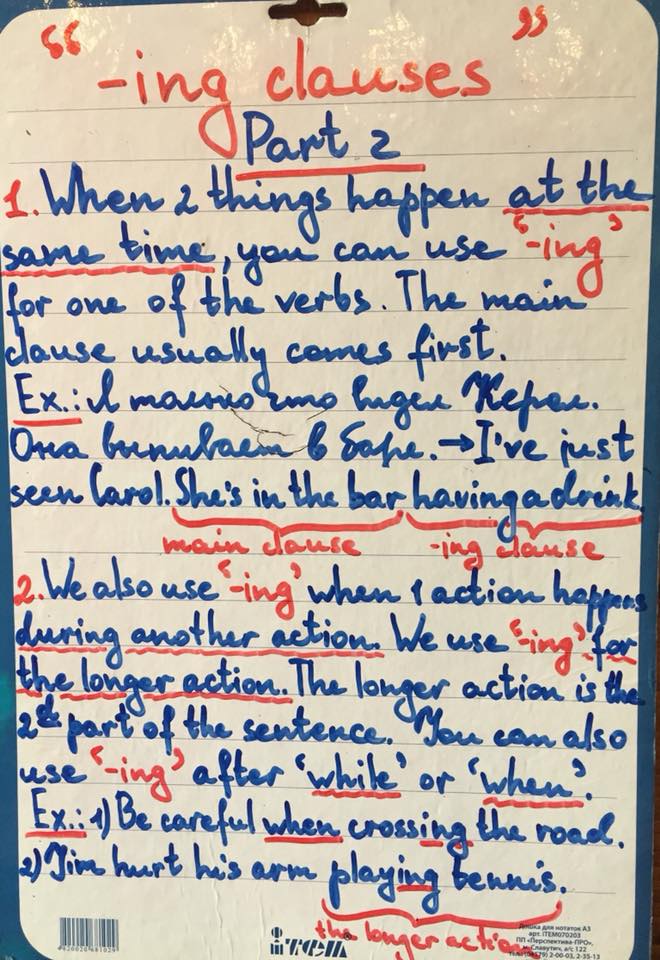 “ ”
-ing clauses
Part 2
1. When 2 things happen at the
same time, you can use ‘-ing’
for one of the verbs. The main
clause usually comes first.
Ex.: Я только что видел Керол.
Она выпивает в баре. → I've just
seen Carol. She's in the bar having a drink.
main clause -ing clause
2. We also use ‘-ing’ when 1 action happens
during another action. We use ‘-ing’ for
the longer action. The longer action is the
2nd part of the sentence. You can also
use ‘-ing’ after ‘while’ or ‘when’.
Ex.: 1) Be careful when crossing the road.
2) Jim hurt his arm playing tennis.
the longer action
4820020681029
iTEM
Дошка для нотаток А3
арт. ITEM070203
ПП «Перспектива-ПРО»,
м. Славутич, а/с 122
2-00-03, 2-35-13